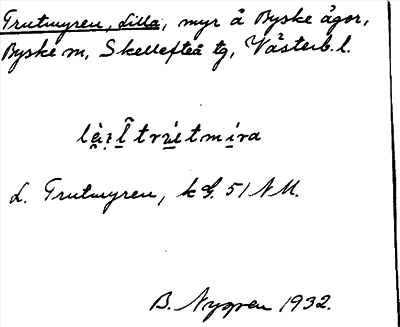 Trutmyren, Lilla, myr å Byske ägor,
Byske sn, Skellefteå tg, Västerb. l.
L. Trutmyren, k bl. 51 NU.
B. Nygren 1932.